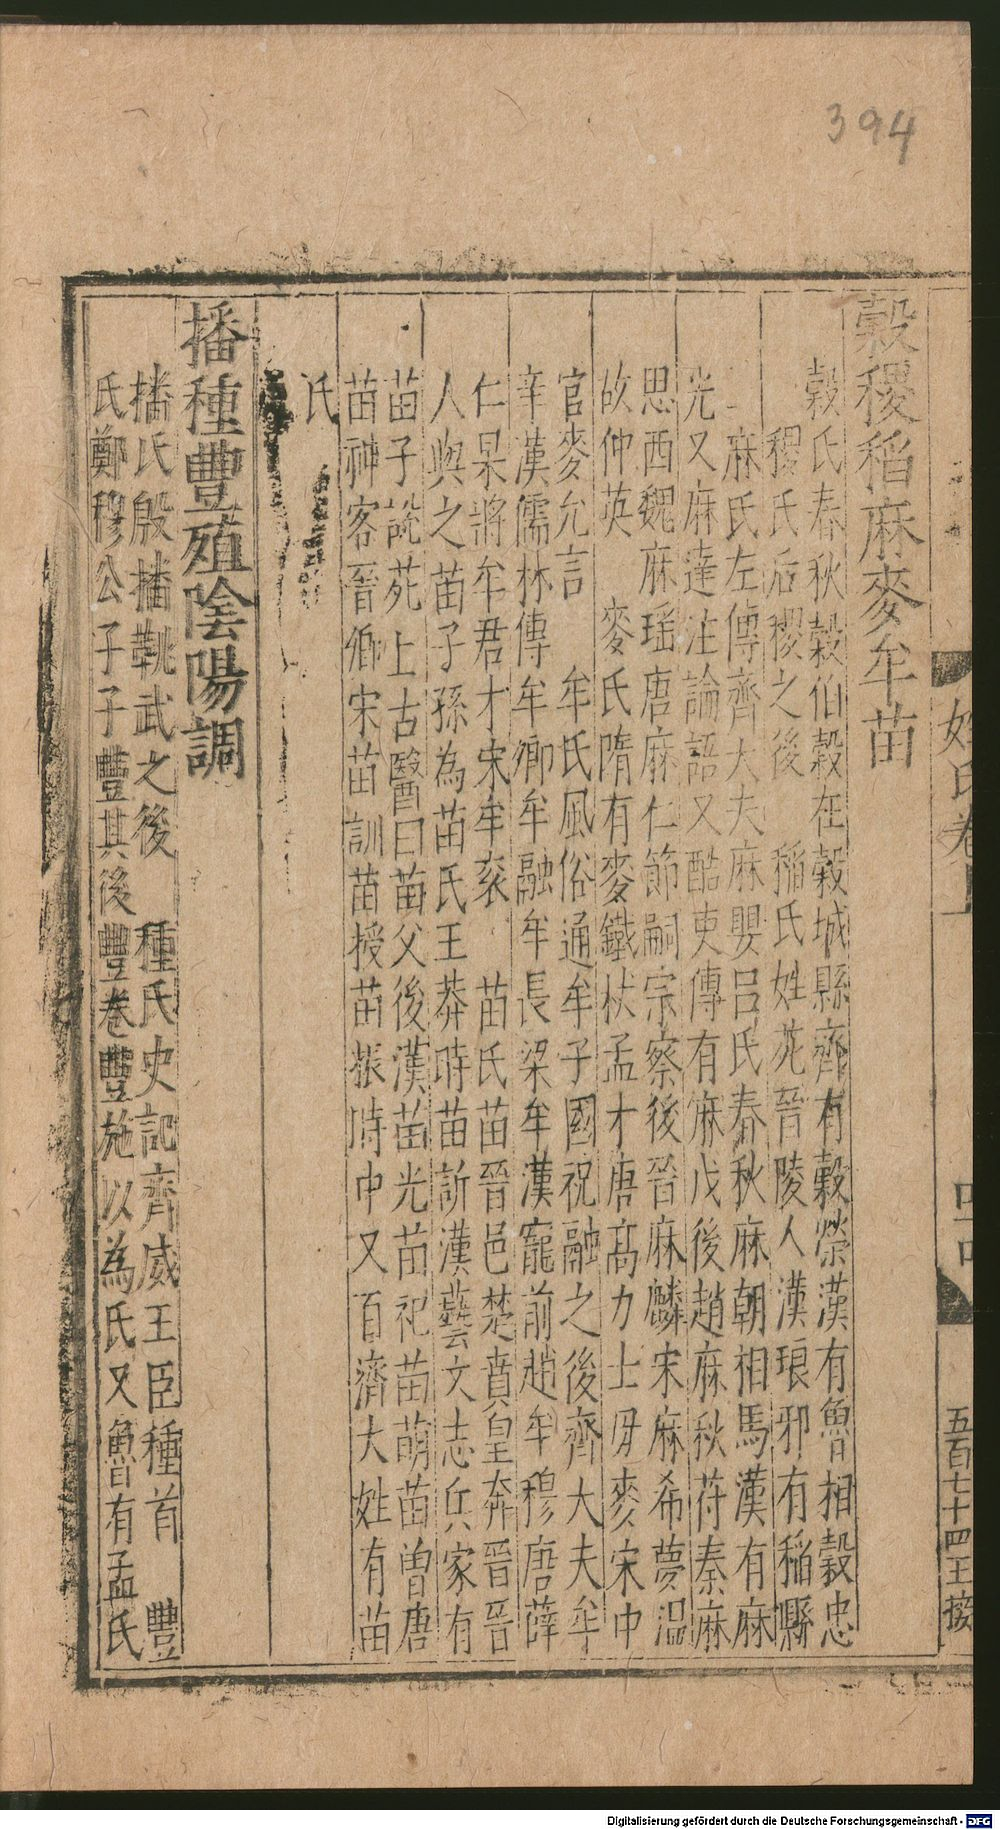 394
穀稷稻麻麥牟苗
穀氏春秋穀伯穀在穀城縣齊有穀榮漢有魯相穀忠
稷氏后稷之後 稻氏姓苑晉陵人漢琅邪有稻縣
麻氏左傳齊大夫麻嬰呂氏春秋麻朝相馬漢有麻
光又麻達注論語又酷吏傳有麻戊後趙麻秋苻秦麻
思西魏麻瑶唐麻仁節嗣宗察後晉麻麟宋麻希夢温
故仲英 麥氏隋有麥鐵杖孟才唐髙力士毋麥宋中
官麥允言 牟氏風俗通牟子國祝融之後齊大夫牟
辛漢儒林傳牟卿牟融牟長梁牟漢寵前趙牟穆唐薛
仁杲將牟君才宋牟衮 苗氏苗晉邑楚賁皇奔晉晉
人與之苗子孫為苗氏王莽時苗訢漢藝文志兵家有
苗子說苑上古醫曰苗父後漢苗光苗祀苗萌苗曽唐
苗神客晉卿宋苗訓苗授苗振時中又百濟大姓有苗
氏
播種豊殖陰陽調
播氏殷播鞉武之後 種氏史記齊威王臣種首 豐
氏鄭穆公子子豐其後豐卷豐施以為氏又魯有孟氏
姓氏卷上
五百七十四王接
Digitalisierung gefördert durch die Deutsche Forschungsgemeinschaft - DFG